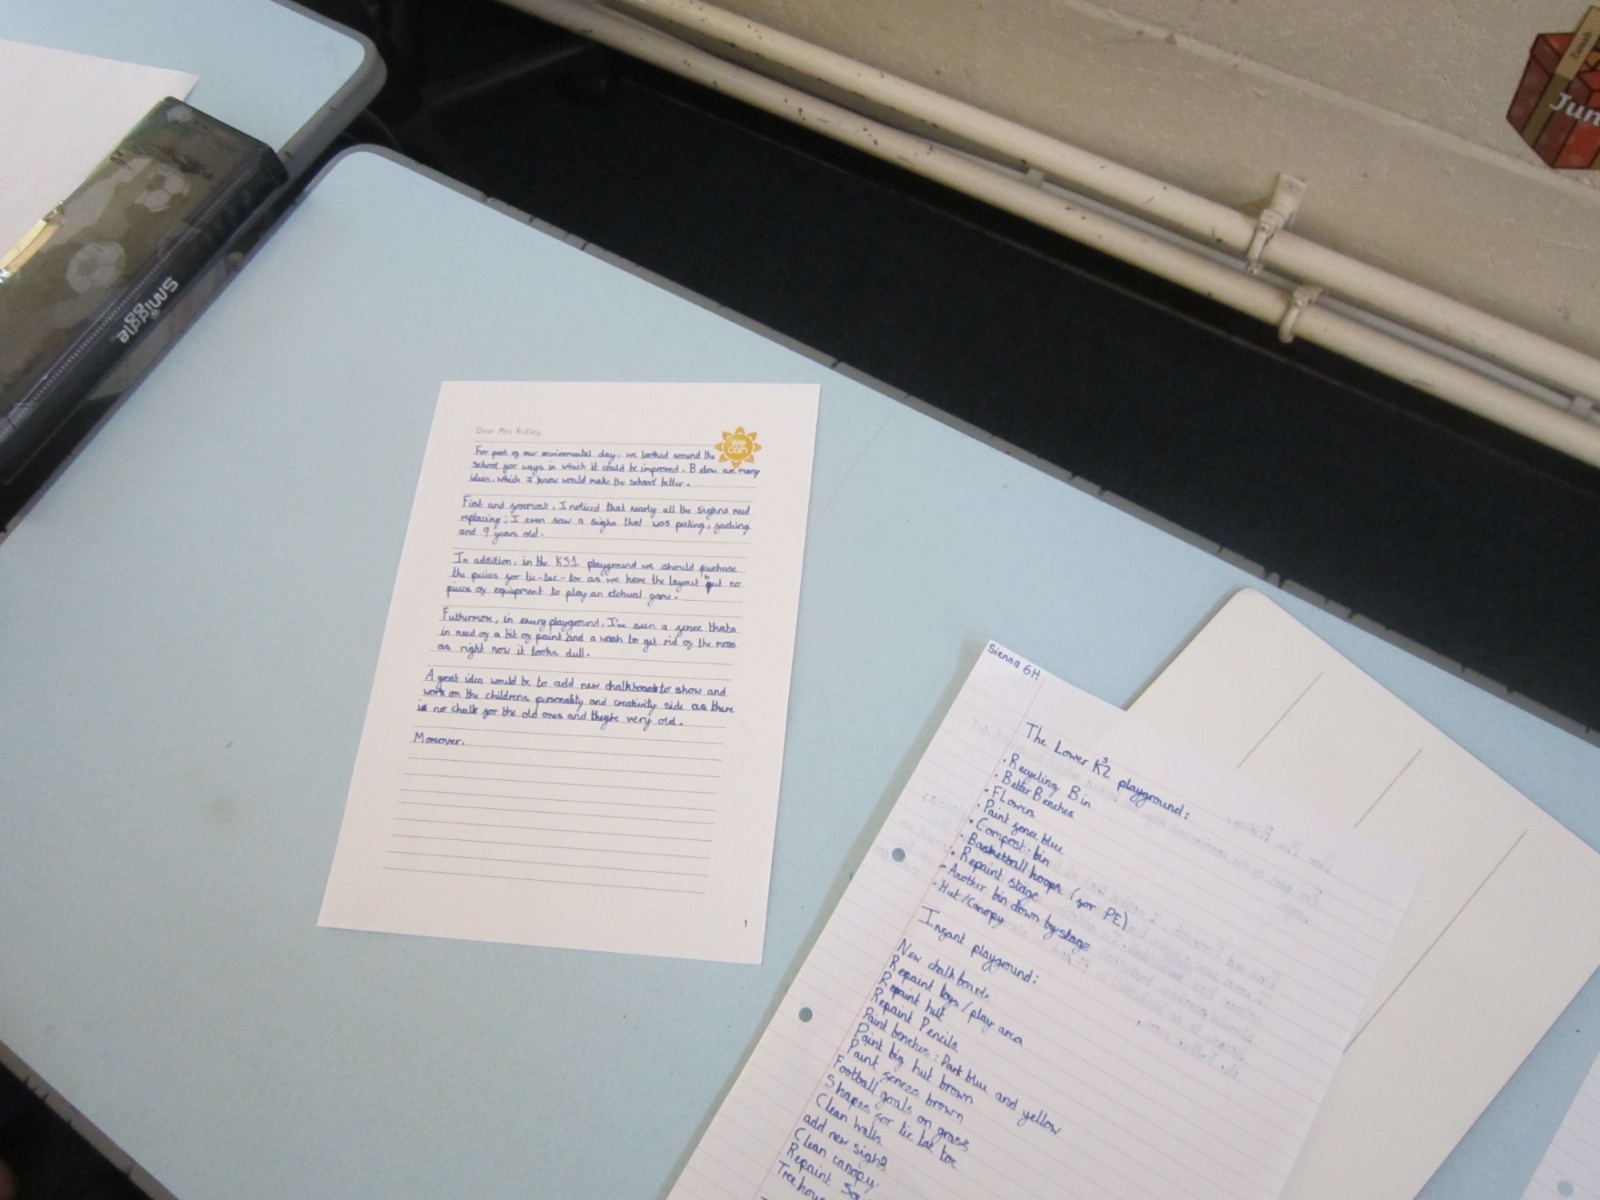 Smiggle
Jun
Dear Mrs Ridley,
we
can
For part of our enviromental day, we looked around the
school for ways in which it could be improved. Below are many
ideas, which I know would make the school better.
First and foremost, I noticed that nearly all the sighns need
replacing; I even saw a sighn that was peeling, fading
and 9 years old.
In addition, in the KS1 playground we should purchase
the pieces for tic-tac-toe as we have the layout but no
pieces or equipment to play an
game.
Futhermore, in every playground, I've seen a fence thats
in need of a bit of paint and a wash to get rid of the moss
as right now it looks dull.
A great idea would be to add new chalkboards to show and
work on the childrens personality and creativity side as there
is no chalk for the old ones and they're very old.
Moreover,
1
Sienna 6H
The Lower KS2 playground:
• Recycling Bin
• Better Benches
• Flowers
• Paint fence blue
• Compost bin
• Basketball hoops (for PE)
• Repaint stage
• Another bin down by stage
• Hut/Canopy
Infant playground:
New chalkboards
Repaint toys/play area
Repaint hut
Repaint Pencils
Paint benches: Dark blue and yellow
Paint big hut brown
Paint fences brown
Football goals on grass
Shapes for tic tac toe
Clean walls
add new sighs
Clean canopy
Repaint
Treehouse